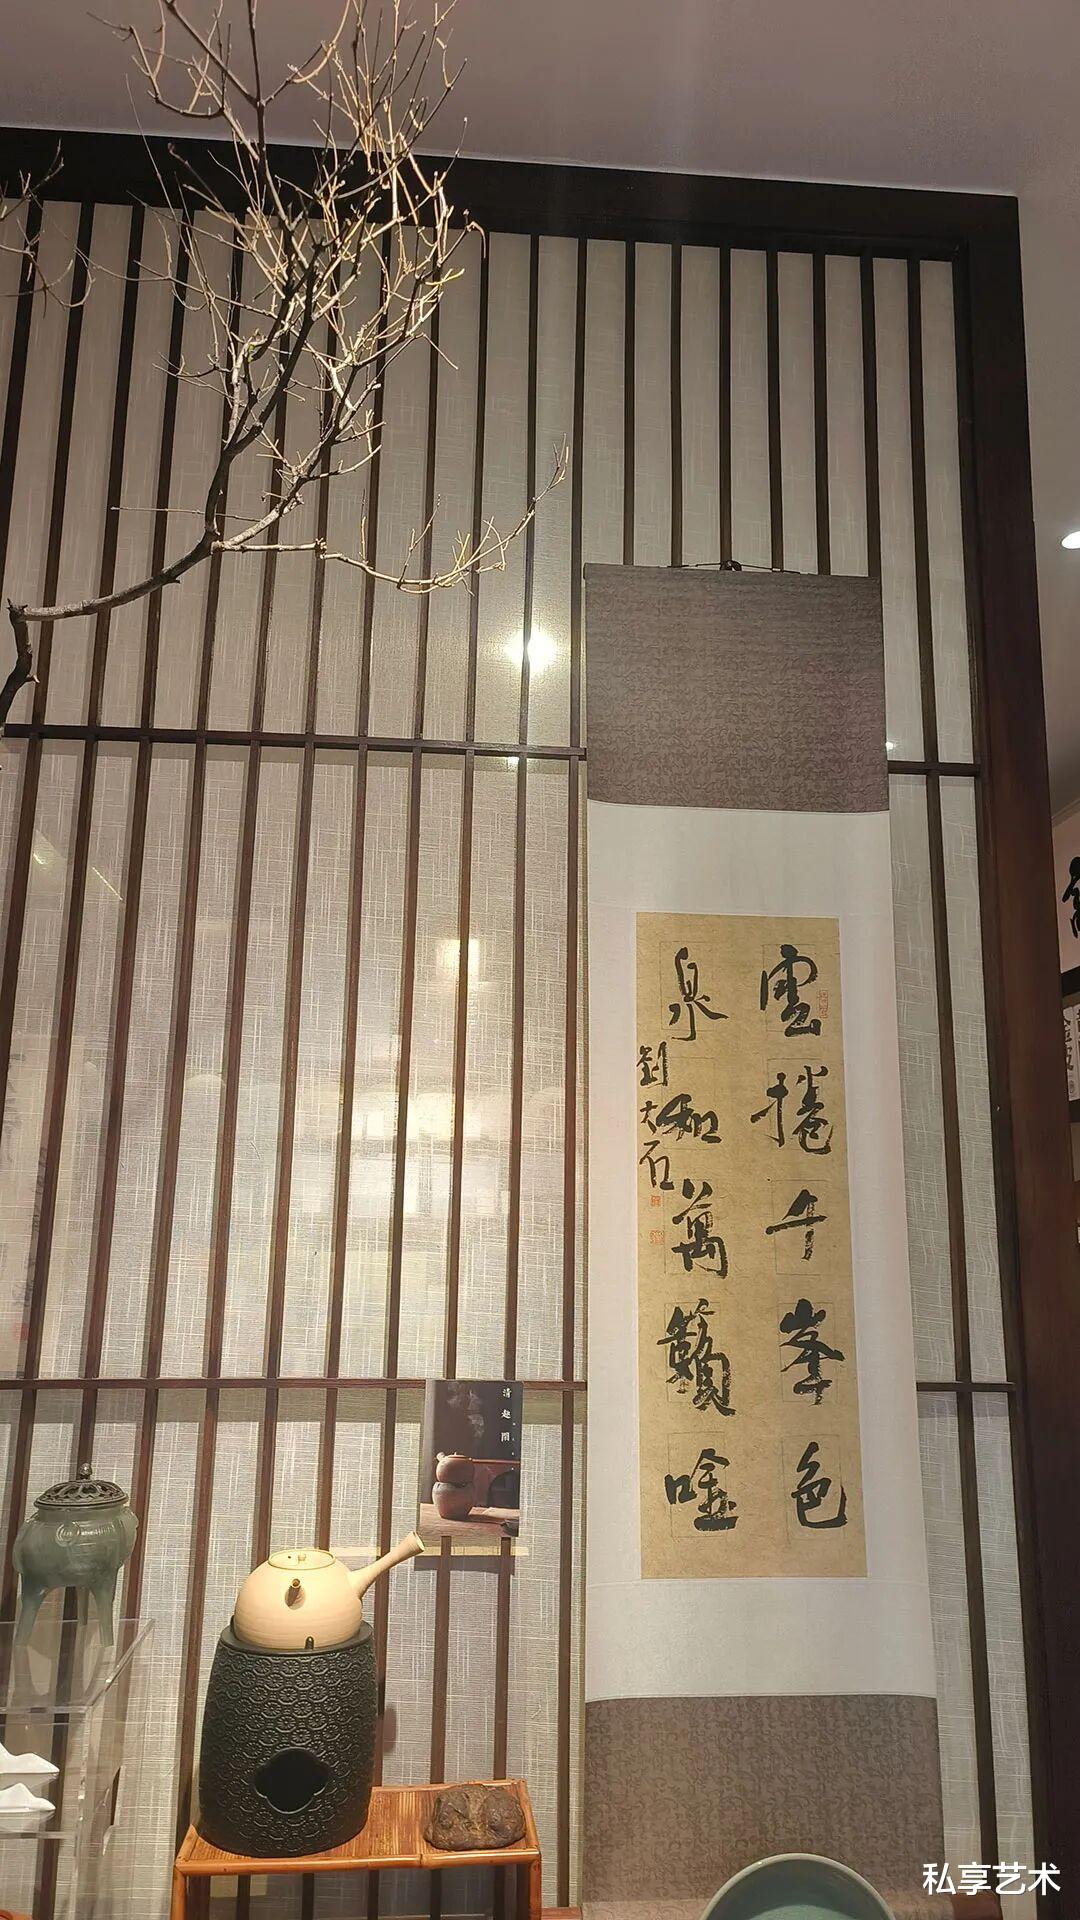 雲捲千峯色
泉和萬籟唫
劉大石
清趣閣
私享艺术